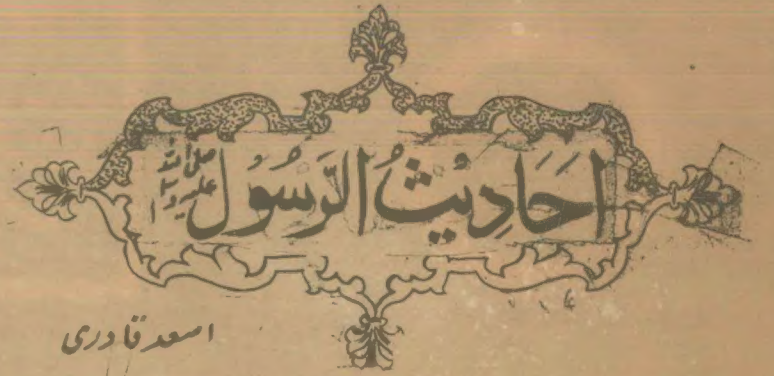 اَحَادِیْثُ الرَّسُوْل صلی اللہ علیہ وسلم
اسعد قادری